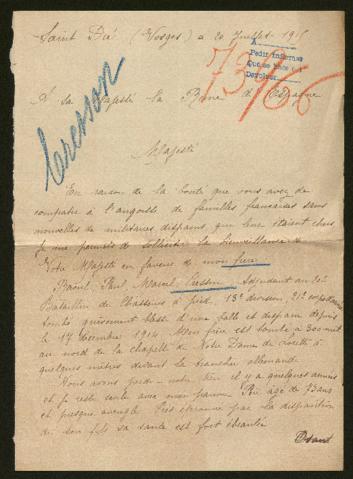 Saint Dié (Vosges) le 20 Juillet 1915
A
Pedir informes
Devolver
73166
Cresson
A Sa Majesté la Reine d'Espagne
Majesté
En raison de la bonté que vous avez de
compatir à l'angoisse de familles françaises sans
nouvelles de militaires disparus qui leur étaient chers
je me permets de solliciter la bienveillance de
Votre Majesté en faveur de mon frère
Raoul Paul Marcel Cresson Adjudant au 20e
Bataillon de Chasseurs à pied, 13e division, 21e corps d'armée
tombé grièvement blessé d'une balle et disparu depuis
le 17 décembre 1914. Mon frère est tombé à 300 mèt
au nord de la chapelle de Notre Dame de Lorette à
quelques mètres devant la tranchée allemande.
Nous avons perdu notre il y a quelques années
et je reste seule avec mon pauvre âgé de 73 ans
et presque aveugle. Très par la disparition
de son fils sa santé est fort ébranlée